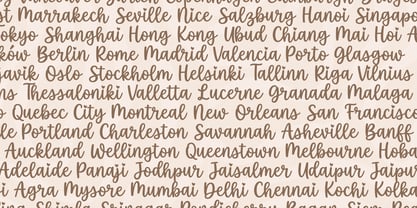 Vancouver Zurich Copenhagen Edinburgh
Marrakech Seville Nice Salzburg Hanoi Singapo
okyo Shanghai Hong Kong Ubud Chiang Mai Hoi A
ków Berlin Rome Madrid Valencia Porto Glasgow
javik Oslo Stockholm Helsinki Tallinn Riga Vilnius
ns Thessaloniki Valletta Lucerne Granada Malaga
o Quebec City Montreal New Orleans San Francisco
le Portland Charleston Savannah Asheville Banff
Auckland Wellington Queenstown Melbourne Hoba
Adelaide Panaji Jodhpur Jaisalmer Udaipur Jaipu
i Agra Mysore Mumbai Delhi Chennai Kochi Kolka
Shimla Srinagar Pondicherry Bagan Siem